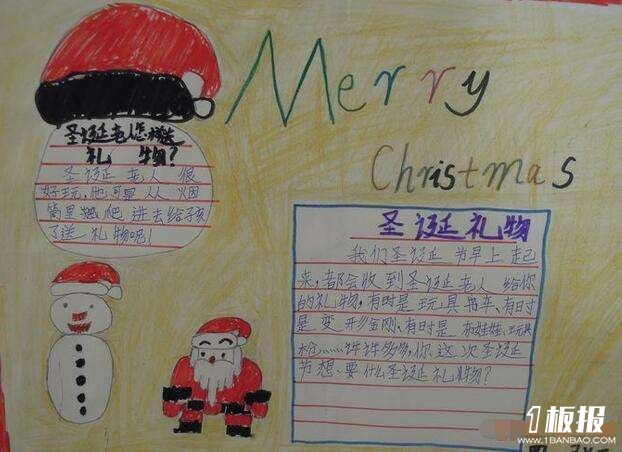 Merry
Christmas
圣诞老人怎样送
礼物?
圣诞老人很
好玩,他可是从烟
筒里爬爬进去给孩
子送礼物呢!
圣诞礼物
我们圣诞节早上起
来,都会收到圣诞老人给你
的礼物,有时是玩具书车、有时
是变形金刚、有时是布娃娃、玩具
枪……许许多多,你这次圣诞
节想要什么圣诞礼物?
1板报
WWW.1BANBAO.COM